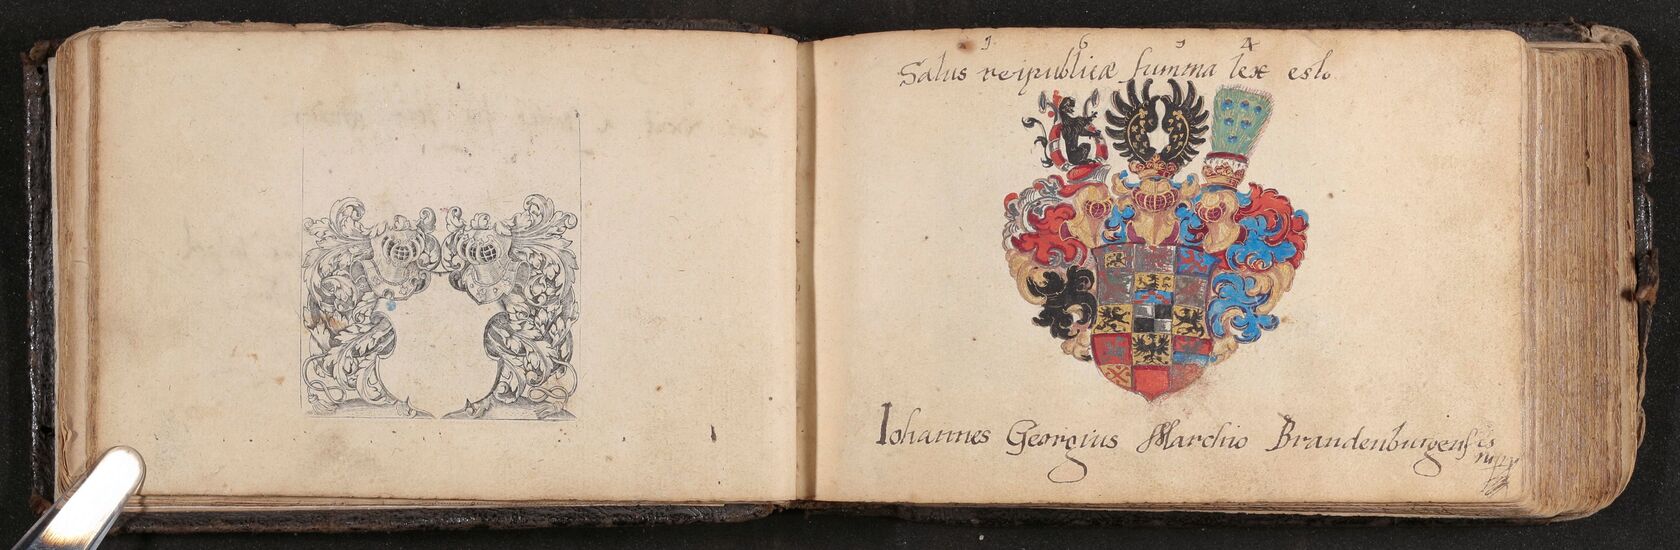 1 6 3 4
Salus reipublicæ summa lex esto
Iohannes Georgius Marchio Brandenburgensis